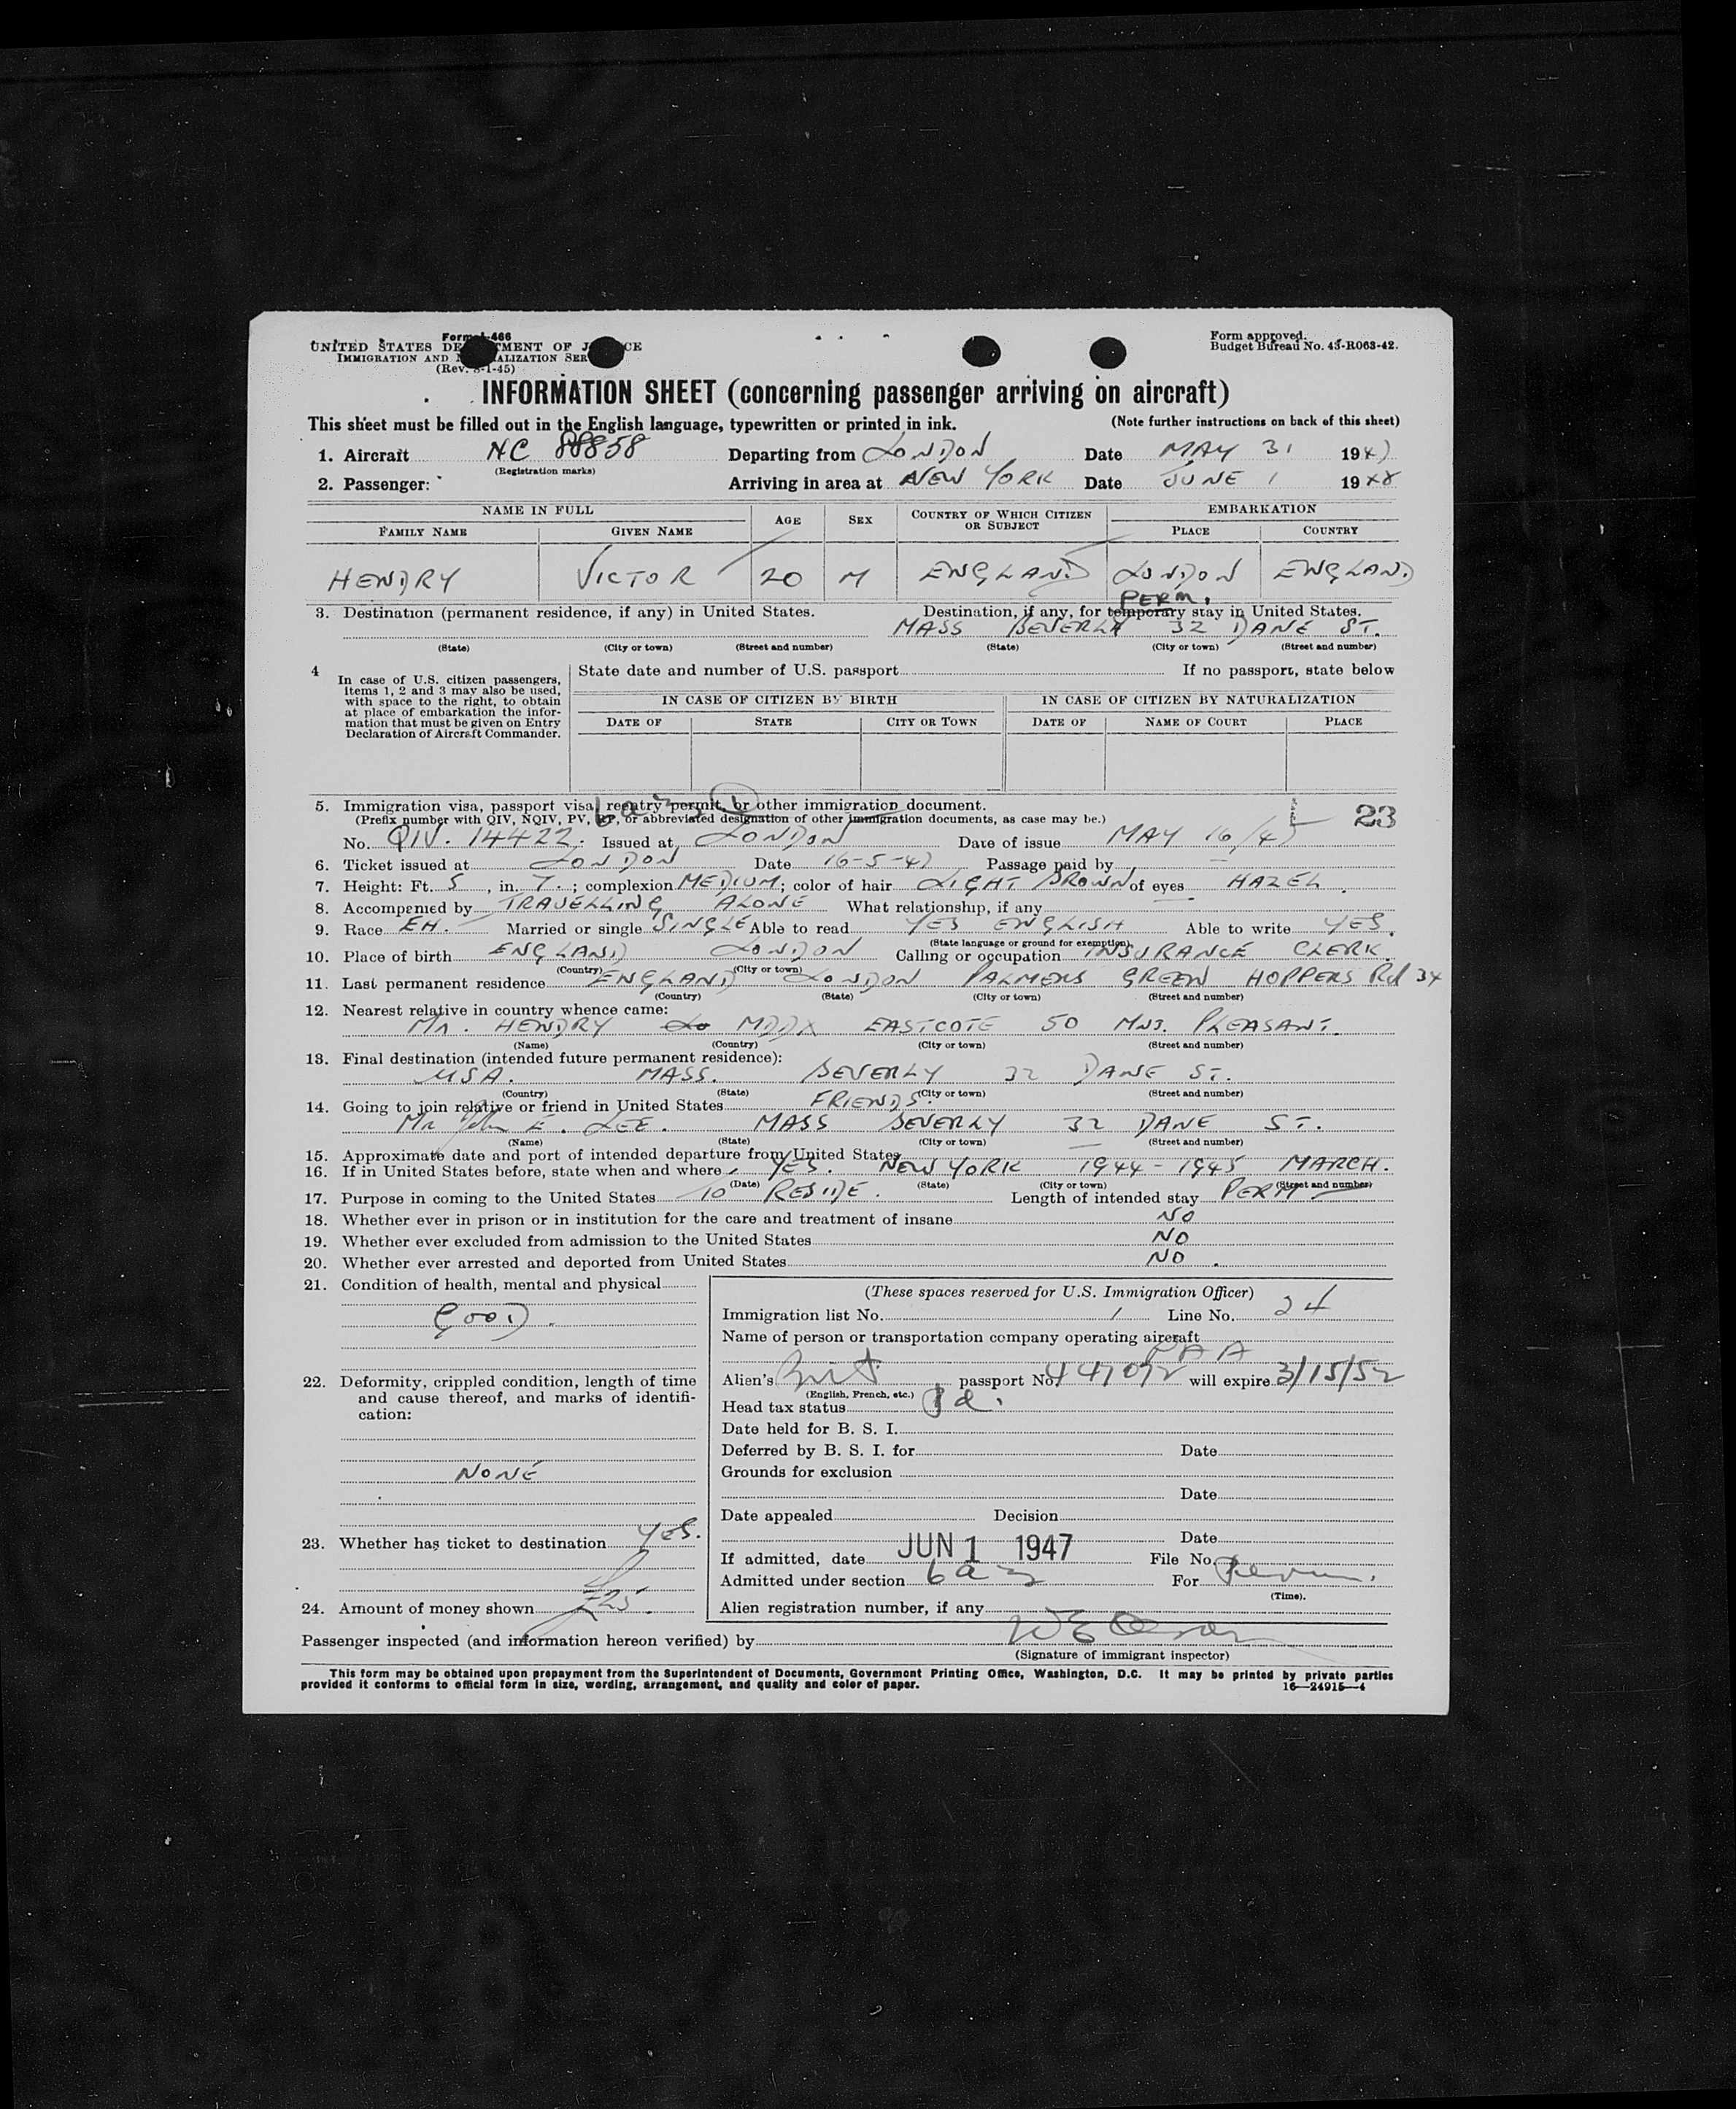 Form I-466
UNITED STATES DEPARTMENT OF JUSTICE
IMMIGRATION AND NATURALIZATION SERVICE
(Rev. 8-1-45)
Form approved.
Budget Bureau No. 43-R063-42.
INFORMATION SHEET (concerning passenger arriving on aircraft)
This sheet must be filled out in the English language, typewritten or printed in ink. (Note further instructions on back of this sheet)
1. Aircraft NC 88858 Departing from LONDON Date MAY 31 1947
(Registration marks)
2. Passenger: Arriving in area at NEW YORK Date JUNE 1 19
NAME IN FULL AGE SEX COUNTRY OF WHICH CITIZEN OR SUBJECT EMBARKATION
FAMILY NAME GIVEN NAME PLACE COUNTRY
HENDRY VICTOR 20 M ENGLAND LONDON ENGLAND
PERM.
3. Destination (permanent residence, if any) in United States. Destination, if any, for temporary stay in United States.
MASS BEVERLY 32 DANE ST.
(State) (City or town) (Street and number) (State) (City or town) (Street and number)
4 In case of U.S. citizen passengers, items 1, 2 and 3 may also be used, with space to the right, to obtain at place of embarkation the information that must be given on Entry Declaration of Aircraft Commander.
State date and number of U.S. passport If no passport, state below
IN CASE OF CITIZEN BY BIRTH IN CASE OF CITIZEN BY NATURALIZATION
DATE OF STATE CITY OR TOWN DATE OF NAME OF COURT PLACE
5. Immigration visa, passport visa, reentry permit, or other immigration document. 23
(Prefix number with QIV, NQIV, PV, RP, or abbreviated designation of other immigration documents, as case may be.)
No. QIV. 14422. Issued at LONDON Date of issue MAY 16/47
6. Ticket issued at LONDON Date 16-5-47 Passage paid by —
7. Height: Ft. 5, in. 7.; complexion MEDIUM; color of hair LIGHT BROWN of eyes HAZEL.
8. Accompanied by TRAVELLING ALONE What relationship, if any
9. Race EH. Married or single SINGLE Able to read YES ENGLISH Able to write YES.
(State language or ground for exemption)
10. Place of birth ENGLAND LONDON Calling or occupation INSURANCE CLERK.
(Country) (City or town)
11. Last permanent residence ENGLAND LONDON PALMERS GREEN HOPPERS Rd 34
(Country) (State) (City or town) (Street and number)
12. Nearest relative in country whence came:
Mr. HENDRY MDDX EASTCOTE 50 MNT. PLEASANT.
(Name) (Country) (City or town) (Street and number)
13. Final destination (intended future permanent residence):
USA. MASS. BEVERLY 32 DANE ST.
(Country) (State) (City or town) (Street and number)
14. Going to join relative or friend in United States FRIENDS.
Mr John E. LEE. MASS BEVERLY 32 DANE ST.
(Name) (State) (City or town) (Street and number)
15. Approximate date and port of intended departure from United States
16. If in United States before, state when and where YES. NEW YORK 1944-1945 MARCH.
(Date) (State) (City or town) (Street and number)
17. Purpose in coming to the United States TO RESIDE. Length of intended stay PERM
18. Whether ever in prison or in institution for the care and treatment of insane NO
19. Whether ever excluded from admission to the United States NO
20. Whether ever arrested and deported from United States NO.
21. Condition of health, mental and physical
GOOD.
22. Deformity, crippled condition, length of time and cause thereof, and marks of identification:
NONE
23. Whether has ticket to destination YES.
24. Amount of money shown £25.
(These spaces reserved for U.S. Immigration Officer)
Immigration list No. 1 Line No. 24
Name of person or transportation company operating aircraft
PAA
Alien's Brit passport No. 447072 will expire 3/15/52
(English, French, etc.)
Head tax status Pd.
Date held for B. S. I.
Deferred by B. S. I. for Date
Grounds for exclusion
Date
Date appealed Decision
Date
If admitted, date JUN 1 1947 File No.
Admitted under section 6a3 For Perm.
(Time).
Alien registration number, if any
Passenger inspected (and information hereon verified) by
(Signature of immigrant inspector)
This form may be obtained upon prepayment from the Superintendent of Documents, Government Printing Office, Washington, D.C. It may be printed by private parties
provided it conforms to official form in size, wording, arrangement, and quality and color of paper. 16—24915—4